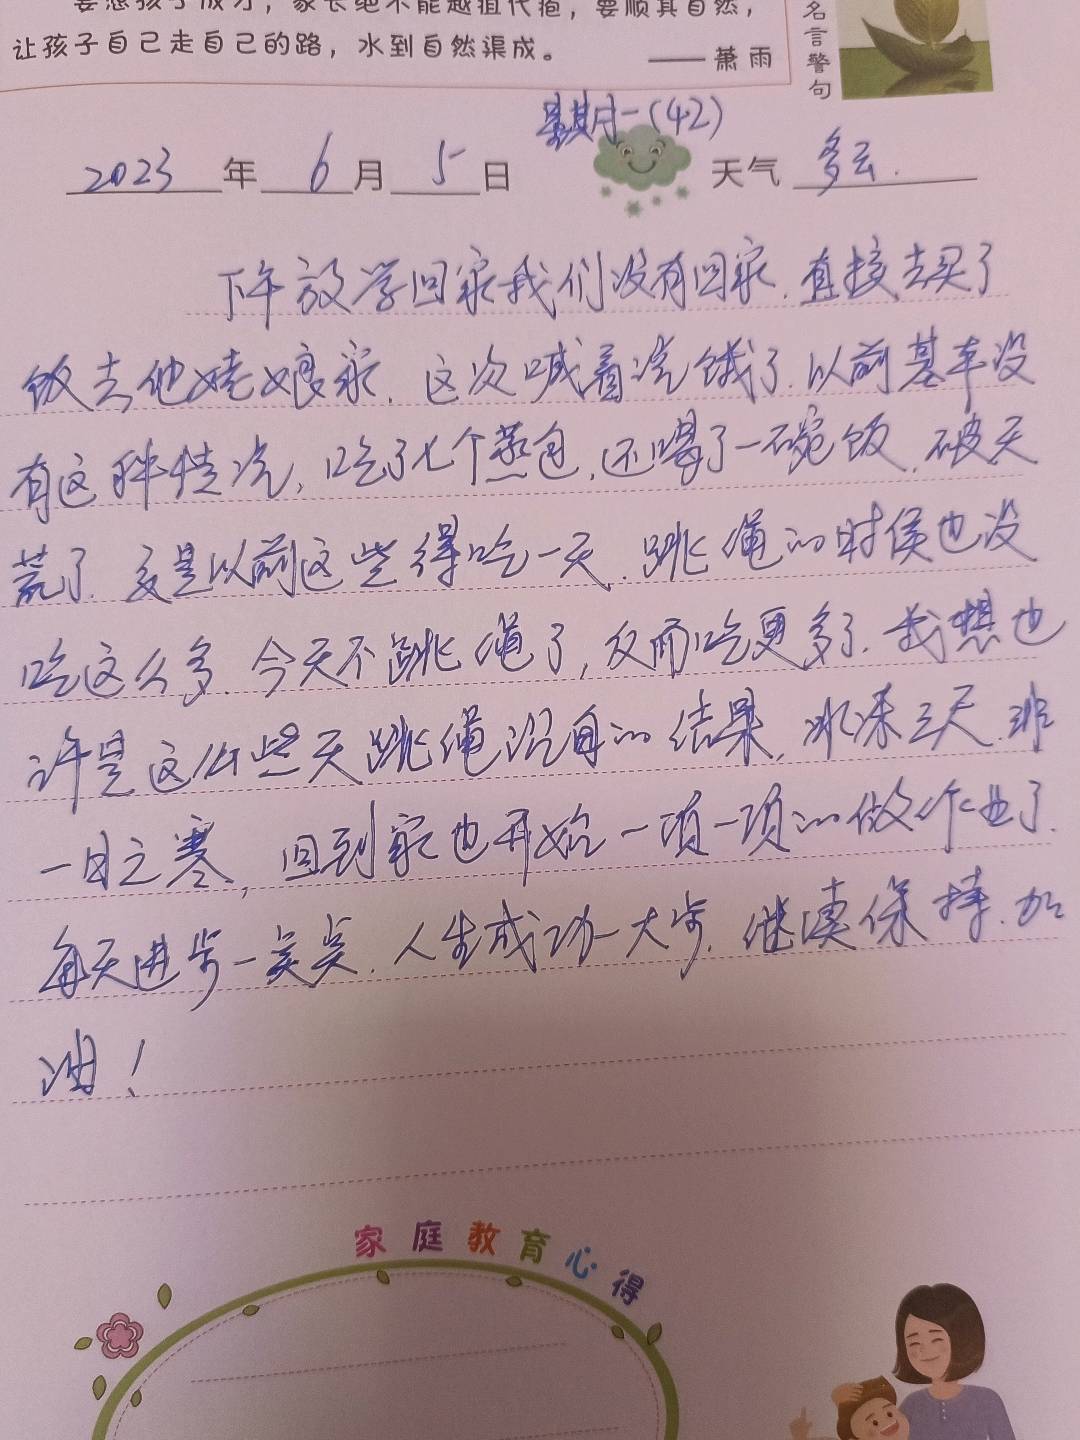 要想孩子成才，家长绝不能越俎代庖，要顺其自然，
让孩子自己走自己的路，水到自然渠成。
——萧雨
名言警句
星期一(42)
2023年6月5日 天气 多云.
下午放学回家我们没有回家,直接去买了
饭去他姥娘家.这次喊着说饿了.以前基本没
有这种情况,吃了七个蒸包,还喝了一碗饭,破天
荒了.这是以前这些得吃一天.跳绳的时候也没
吃这么多.今天不跳绳了,反而吃更多了.我想也
许是这么些天跳绳沉身的结果,冰冻三尺,非
一日之寒,回到家也开始一项一项的做作业了.
每天进步一点点.人生成功一大步.继续保持.加
油!
家庭教育心得